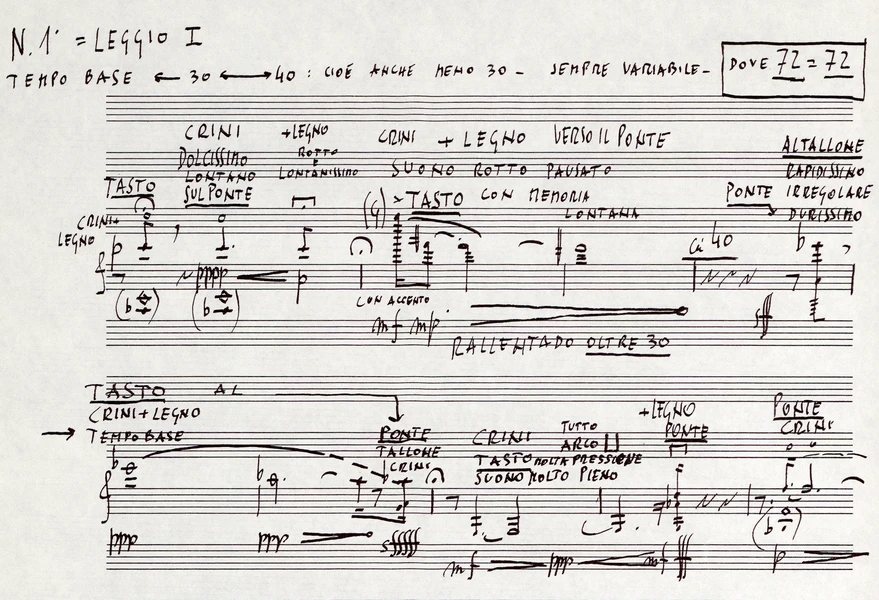 N. 1° = LEGGIO I
TEMPO BASE ← 30 ↔ 40 : CIOÈ ANCHE MENO 30 - SEMPRE VARIABILE - DOVE 72 = 72
CRINI +LEGNO CRINI + LEGNO VERSO IL PONTE ALTALLONE
DOLCISSIMO ROTTO
LONTANO E LONTANISSIMO SUONO ROTTO PAUSATO RAPIDISSIMO
TASTO SUL PONTE TASTO CON MEMORIA PONTE IRREGOLARE
LONTANA DURISSIMO
CRINI+
LEGNO (4)
p pppp p 40
CON ACCENTO
mf mp sff
RALLENTADO OLTRE 30
TASTO AL
CRINI+LEGNO +LEGNO PONTE
→ TEMPO BASE PONTE CRINI TUTTO PONTE CRINI
TALLONE ARCO
CRINI TASTO MOLTA PRESSIONE
SUONO MOLTO PIENO
ppp ppp sfffff
mf ppp p